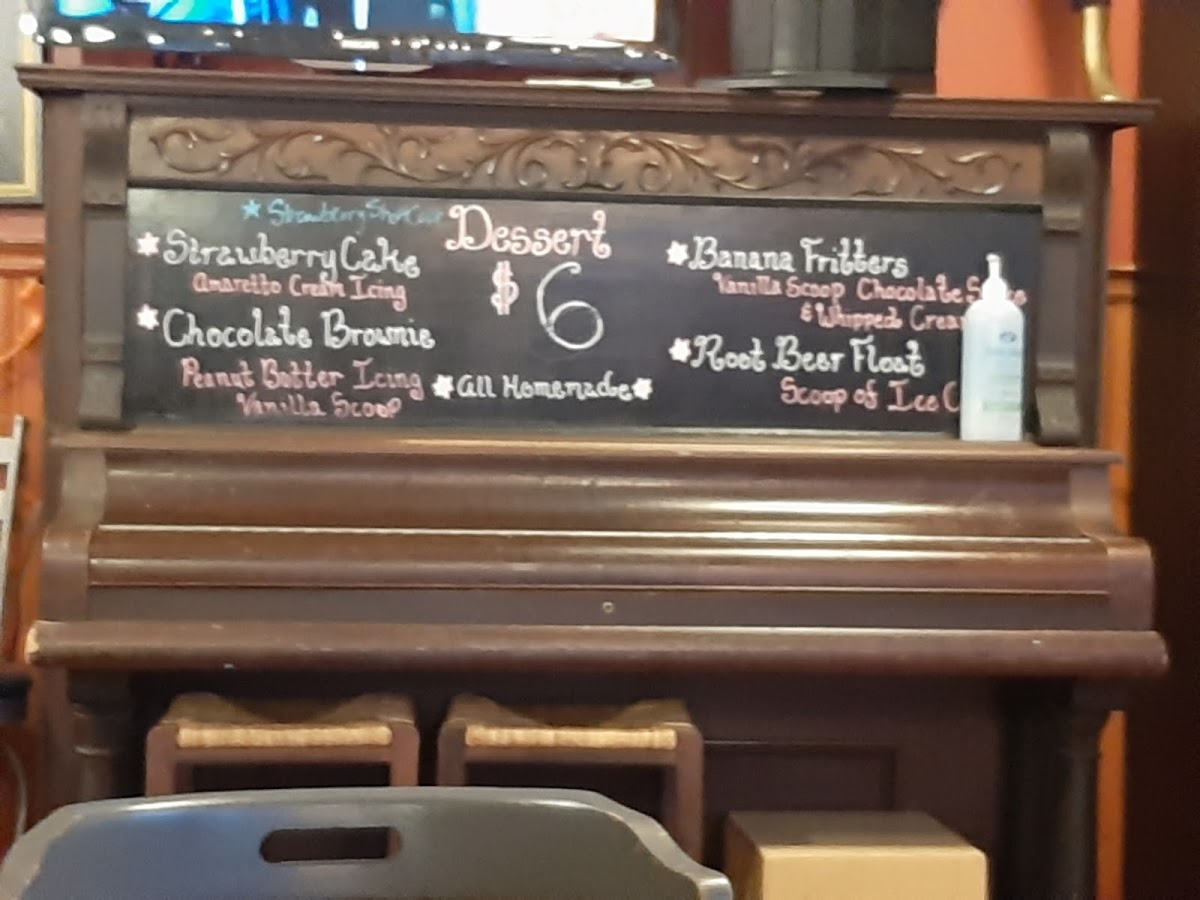 Strawberry Shortcake
Strawberry Cake
Amaretto Cream Icing
Chocolate Brownie
Peanut Butter Icing
Vanilla Scoop
Dessert
$6
All Homemade
Banana Fritters
Vanilla Scoop Chocolate
& Whipped
Root Beer Float
Scoop of Ice